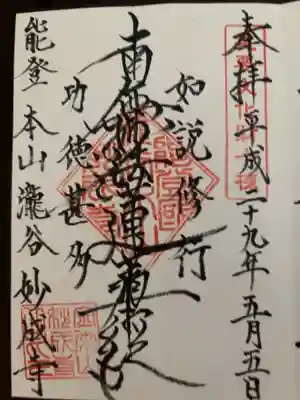 奉拝 平成二十九年五月五日
如説修行
南無妙法蓮華経
功徳甚多
能登 本山 瀧谷 妙成寺